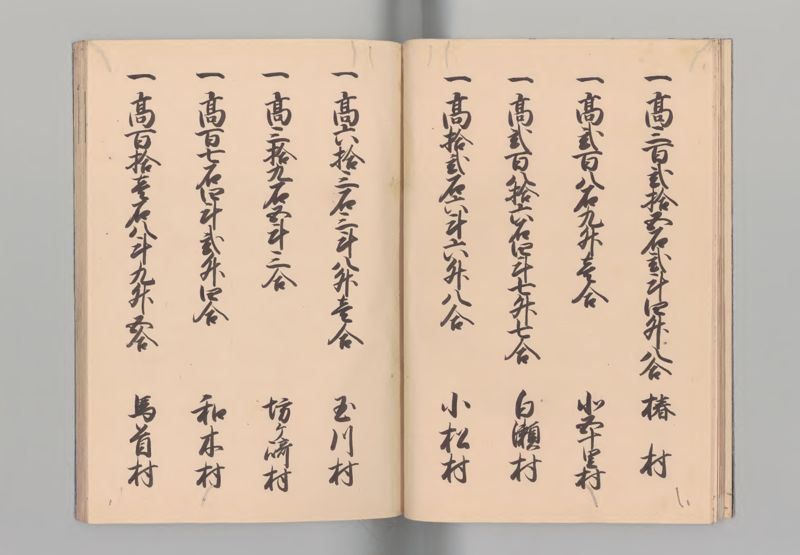 一高三百弐拾五石弐斗四升八合 椿村
一高弐百八石九升壱合 北五十里村
一高弐百八拾六石四斗七升七合 白瀬村
一高拾弐石六斗六升八合 小松村
一高六拾三石三斗八升壱合 玉川村
一高三拾九石五斗三合 坊ヶ崎村
一高百七石四斗弐升四合 和木村
一高百拾壱石八斗九升五合 馬首村